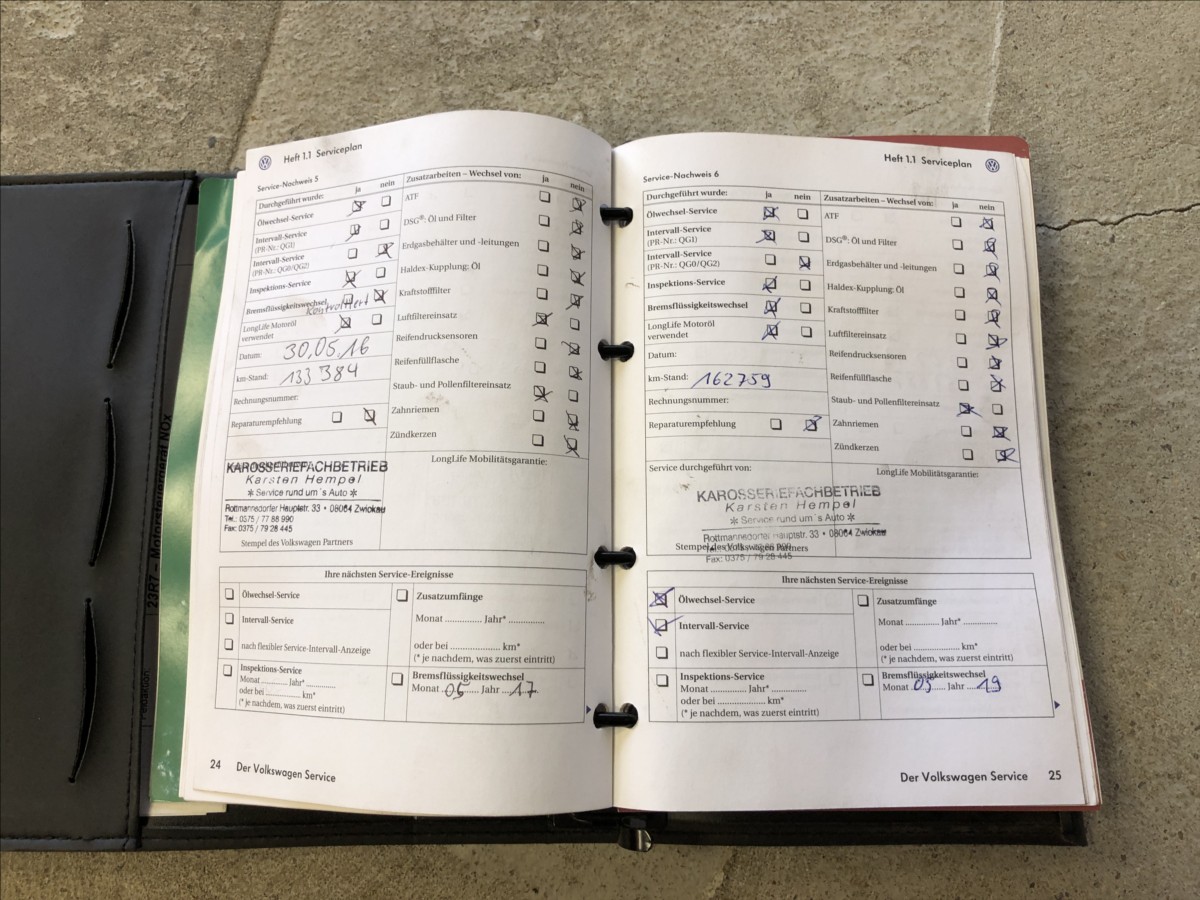 Heft 1.1 Serviceplan
Service-Nachweis 5
Durchgeführt wurde: ja nein
Ölwechsel-Service
Intervall-Service
(PR-Nr.: QG1)
Intervall-Service
(PR-Nr.: QG0/QG2)
Inspektions-Service
Bremsflüssigkeitswechsel
kontrolliert
LongLife Motoröl
verwendet
Datum: 30.05.16
km-Stand: 133 384
Rechnungsnummer:
Reparaturempfehlung
Zusatzarbeiten – Wechsel von: ja nein
ATF
DSG®: Öl und Filter
Erdgasbehälter und -leitungen
Haldex-Kupplung: Öl
Kraftstofffilter
Luftfiltereinsatz
Reifendrucksensoren
Reifenfüllflasche
Staub- und Pollenfiltereinsatz
Zahnriemen
Zündkerzen
KAROSSERIEFACHBETRIEB
Karsten Hempel
* Service rund um´s Auto *
Rottmannsdorfer Hauptstr. 33 • 08064 Zwickau
Tel.: 0375 / 77 88 990
Fax: 0375 / 79 28 445
Stempel des Volkswagen Partners
LongLife Mobilitätsgarantie:
Ihre nächsten Service-Ereignisse
Ölwechsel-Service
Intervall-Service
nach flexibler Service-Intervall-Anzeige
Inspektions-Service
Monat ............ Jahr* ............
oder bei ............ km*
(* je nachdem, was zuerst eintritt)
Zusatzumfänge
Monat ............ Jahr* ............
oder bei ............ km*
(* je nachdem, was zuerst eintritt)
Bremsflüssigkeitswechsel
Monat 05 Jahr 17
24 Der Volkswagen Service
Heft 1.1 Serviceplan
Service-Nachweis 6
Durchgeführt wurde: ja nein
Ölwechsel-Service
Intervall-Service
(PR-Nr.: QG1)
Intervall-Service
(PR-Nr.: QG0/QG2)
Inspektions-Service
Bremsflüssigkeitswechsel
LongLife Motoröl
verwendet
Datum:
km-Stand: 162759
Rechnungsnummer:
Reparaturempfehlung
Zusatzarbeiten – Wechsel von: ja nein
ATF
DSG®: Öl und Filter
Erdgasbehälter und -leitungen
Haldex-Kupplung: Öl
Kraftstofffilter
Luftfiltereinsatz
Reifendrucksensoren
Reifenfüllflasche
Staub- und Pollenfiltereinsatz
Zahnriemen
Zündkerzen
Service durchgeführt von:
KAROSSERIEFACHBETRIEB
Karsten Hempel
* Service rund um´s Auto *
Rottmannsdorfer Hauptstr. 33 • 08064 Zwickau
Stempel des Volkswagen Partners
Fax: 0375 / 79 28 445
LongLife Mobilitätsgarantie:
Ihre nächsten Service-Ereignisse
Ölwechsel-Service
Intervall-Service
nach flexibler Service-Intervall-Anzeige
Inspektions-Service
Monat ............ Jahr* ............
oder bei ............ km*
(* je nachdem, was zuerst eintritt)
Zusatzumfänge
Monat ............ Jahr* ............
oder bei ............ km*
(* je nachdem, was zuerst eintritt)
Bremsflüssigkeitswechsel
Monat 05 Jahr 19
Der Volkswagen Service 25
23R7 – Motorsteuergerät NOx